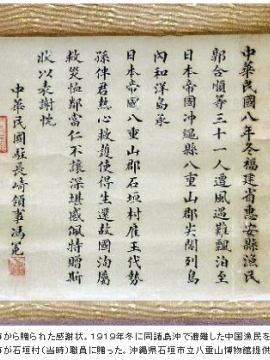 中華民國八年冬福建省惠安縣漁民
郭合順等三十一人遭風遇難飄泊至
日本帝國沖繩縣八重山郡尖閣列島
內和洋島承
日本帝國八重山郡石垣村雇玉代勢
孫伴君熱心救護使得生還故國洵屬
救災恤鄰當仁不讓深堪感佩特贈斯
狀以表謝忱
中華民國駐長崎領事馮冕
から贈られた感謝状。1919年冬に同諸島沖で遭難した中国漁民を
が石垣村(当時)職員に贈った。沖縄県石垣市立八重山博物館提供